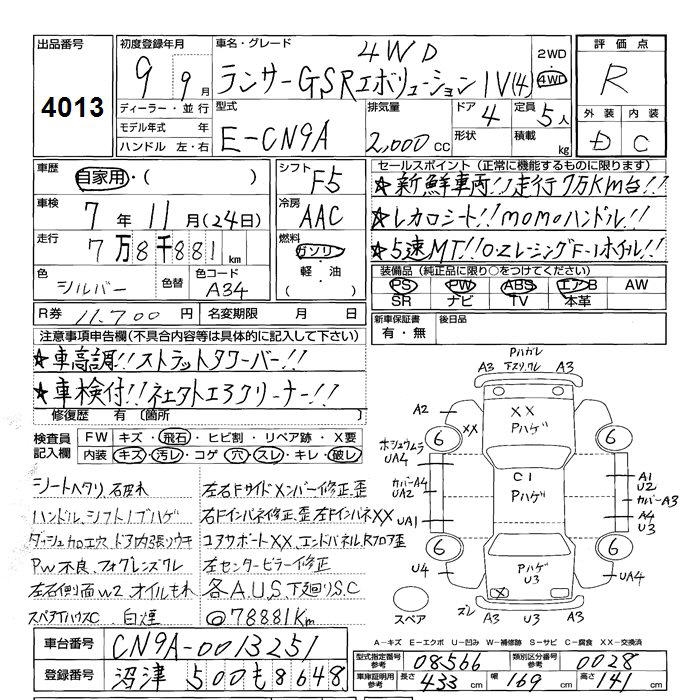 出品番号
4013
初度登録年月
9 9月
ディーラー・並行
モデル年式 年
ハンドル 左・右
車名・グレード
4WD
ランサーGSRエボリューションIV(4)
2WD
4WD
型式
E-CN9A
排気量
2,000cc
ドア
4
形状
定員
5人
積載
kg
評価点
R
外装 内装
D C
車歴
自家用・( )
車検
7年11月(24日)
走行
7万8千881km
色
シルバー
色替
色コード
A34
シフト
F5
冷房
AAC
燃料
ガソリン
軽・油
R券 11,700円
名変期限 月 日
セールスポイント(正常に機能するものに限ります)
★新鮮車両!!走行7万KM台!!
★レカロシート!!momoハンドル!!
★5速MT!!OZレーシングF-1ホイル!!
装備品(純正品に限り○をつけてください)
PS PW ABS エアB AW
SR ナビ TV 本革
新車保証書
有・無
後日品
注意事項申告欄(不具合内容等は具体的に記入して下さい)
★車高調!!ストラットタワーバー!!
★車検付!!
修復歴 有(箇所 )
検査員
記入欄
FW キズ・飛石・ヒビ割・リペア跡・X要
内装 キズ・汚レ・コゲ・穴・スレ・キレ・破レ
シートヘタリ
ハンドル、シフトノブハゲ
PW不良、フォグレンズワレ
左右側面W2 オイルもれ
白煙
左右Fサイドメンバー修正、歪
右Fインパネ修正、歪 左FインパネXX
コアサポートXX、エンドパネル、Rフロア歪
左センターピラー修正
各A.U.S. 下廻りS.C
@78881Km
Pハガレ
A3 A3
A2
XX
XX
Pハゲ
6 6
UA4
UA2
UA1
カバーA4
C1
Pハゲ
A1
U2
カバーA3
A4
U3
6 6
U4
UA4
Pハゲ
U3
X
スペア
ズレ
A3 U3 A3
A-キズ E-エクボ U-凹み W-補修跡 S-サビ C-腐食 XX-交換済
車台番号
CN9A-0013251
登録番号
沼津500も8648
型式指定番号
参考
08566
類別区分番号
参考
0028
車庫証明用
参考
長さ
433cm
幅
169cm
高さ
141cm